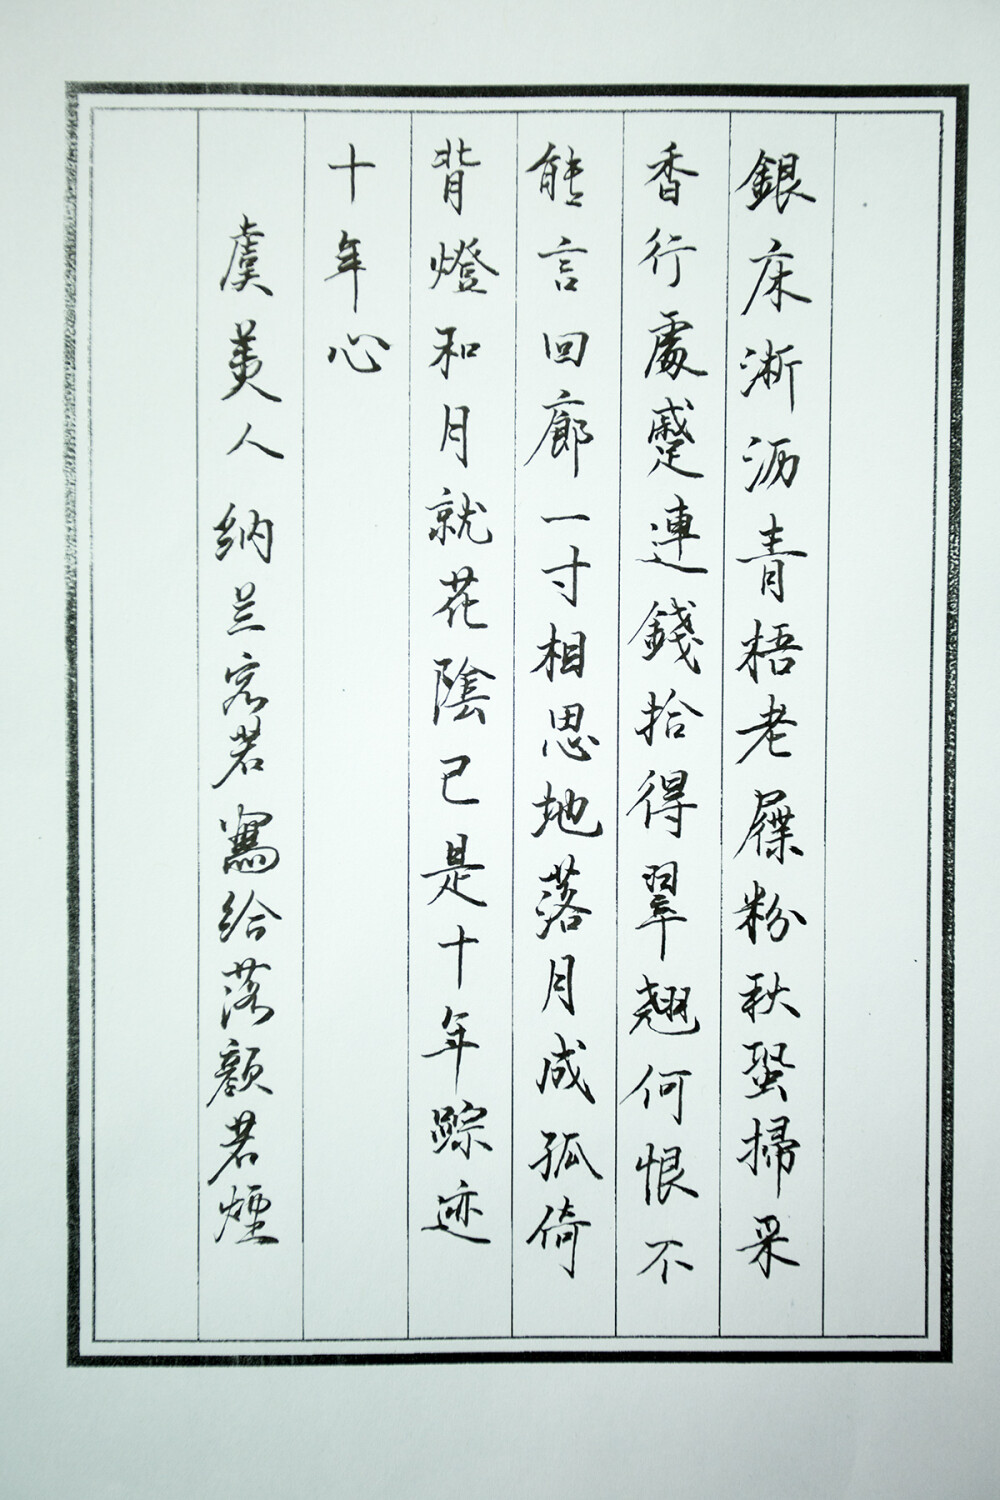 銀床淅沥青梧老屧粉秋蛩掃采
香行處蹙連錢拾得翠翹何恨不
能言回廊一寸相思地落月成孤倚
背燈和月就花陰已是十年踪迹
十年心
虞美人 纳兰容若寫给落顏若煙